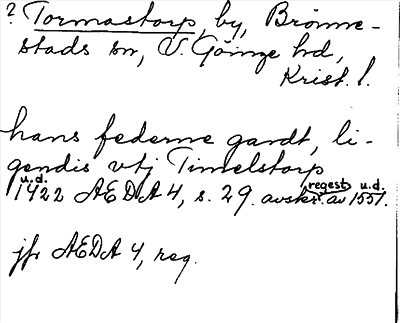 ? Tormastorp, by, Brönne-
stads sn, V. Göinge hd,
Krist. l.
hans federne gardt, li-
gendis vtj Timelstorp
u.d. 1422 AEDA 4, s. 29. avskr. regest av u.d. 1551.
jfr AEDA 4, reg.